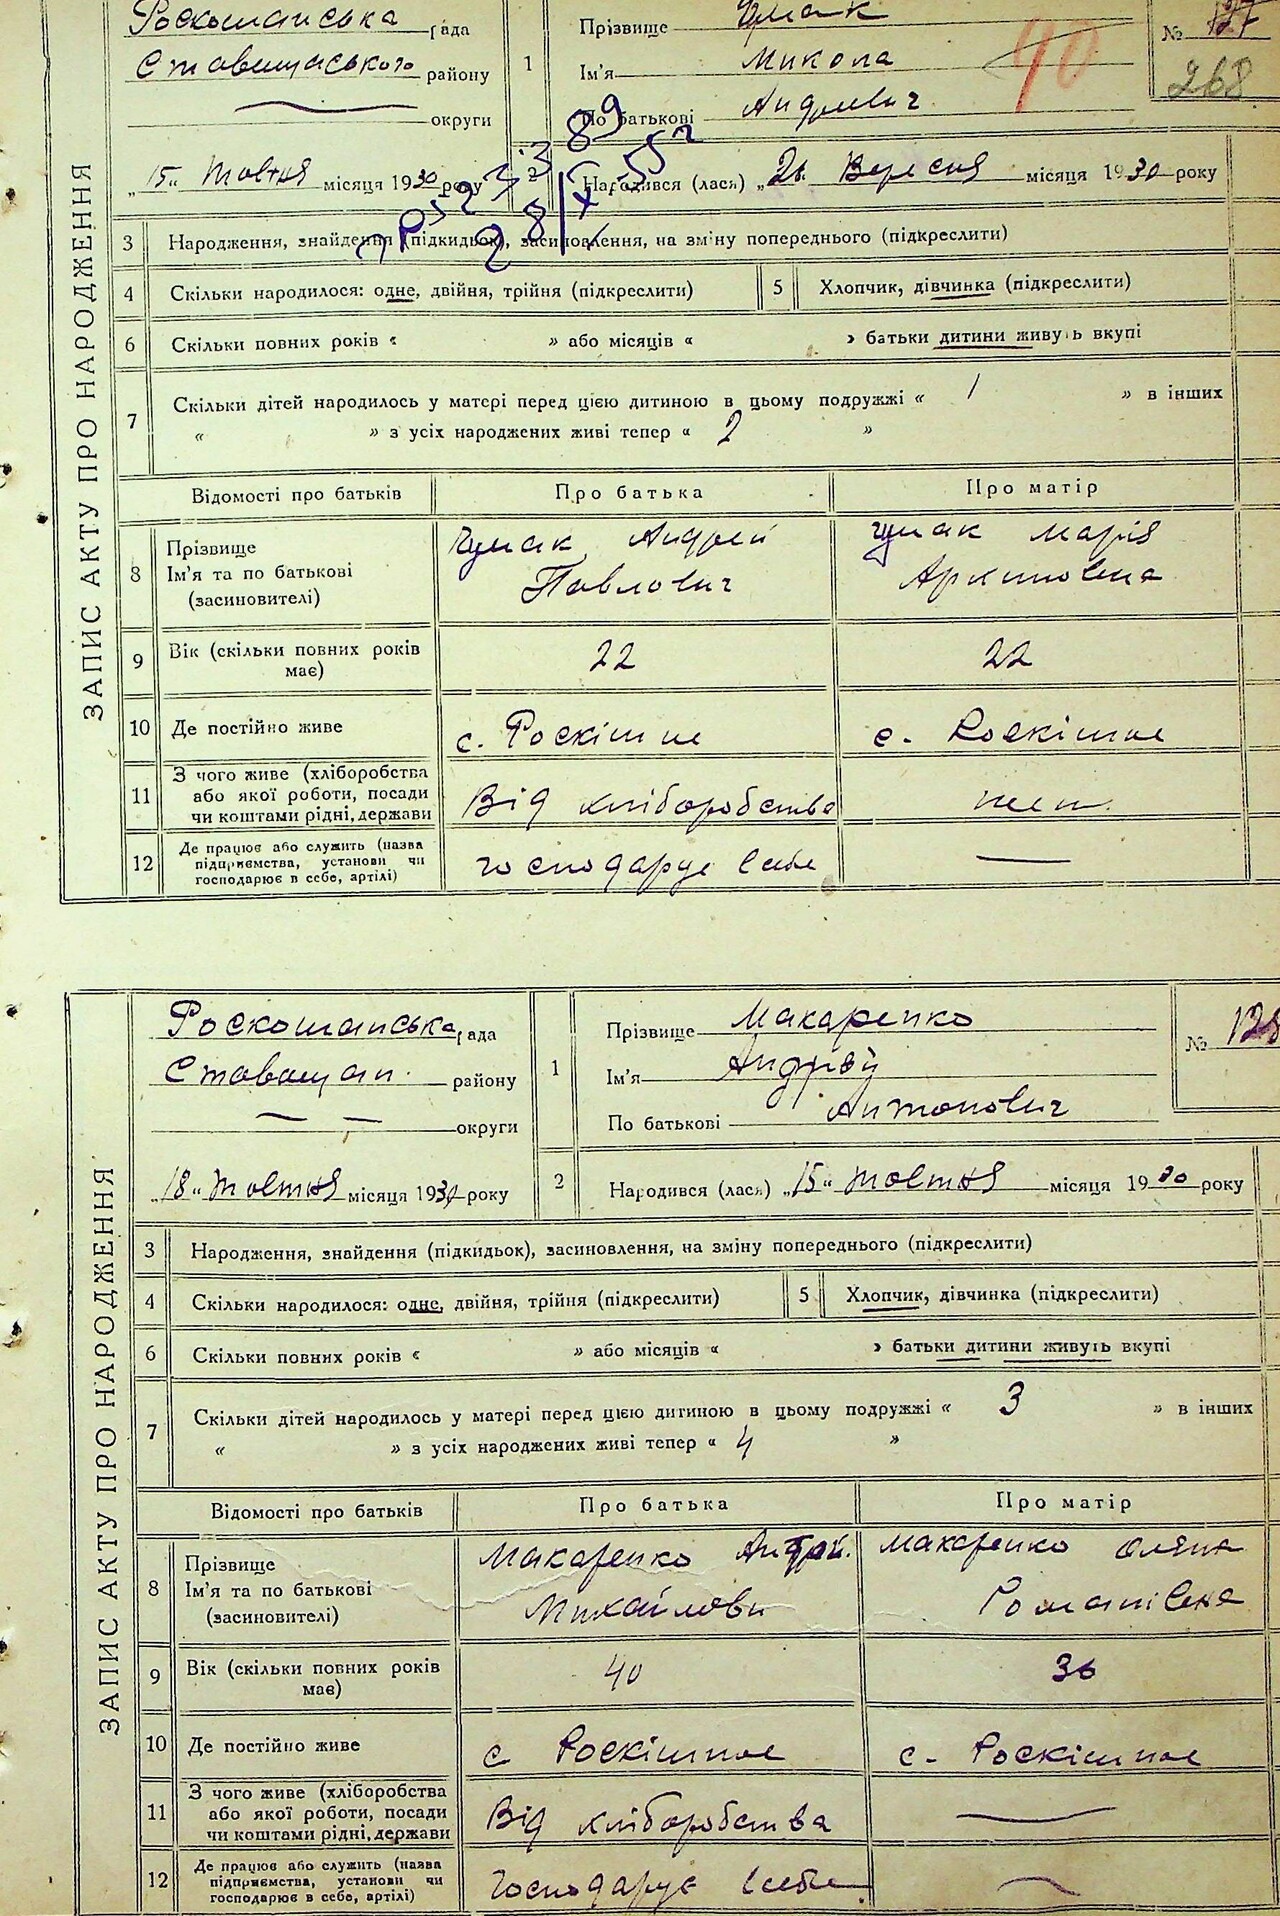 ЗАПИС АКТУ ПРО НАРОДЖЕННЯ
Роскошанська рада
Ставищаського району
округи
„15“ Жовтня місяця 1930 року
1
Прізвище Чумак
Ім'я Микола
По батькові Андреевич
№ 127
90
268
2 Народився (лася) „26 Вересня місяця 1930 року
28/X 55 г
3 Народження, знайдення (підкидьок), засиновлення, на зміну попереднього (підкреслити)
4 Скільки народилося: одне, двійня, трійня (підкреслити)
5 Хлопчик, дівчинка (підкреслити)
6 Скільки повних років « » або місяців « » батьки дитини живуть вкупі
7 Скільки дітей народилось у матері перед цією дитиною в цьому подружжі « 1 » в інших
« » з усіх народжених живі тепер « 2 »
Відомості про батьків Про батька Про матір
8 Прізвище Ім'я та по батькові (засиновителі)
Чумак Андрей
Павлович
Чумак Марія
Архиповна
9 Вік (скільки повних років має) 22 22
10 Де постійно живе с. Роскішне с. Роскішне
11 З чого живе (хліборобства або якої роботи, посади чи коштами рідні, держави Від хліборобства
12 Де працює або служить (назва підприємства, установи чи господарює в себе, артілі) господарує в себе
ЗАПИС АКТУ ПРО НАРОДЖЕННЯ
Роскошанська рада
Ставищан. району
округи
„18“ Жовтня місяця 1930 року
1
Прізвище Макаренко
Ім'я Андрій
По батькові Антонович
№ 128
2 Народився (лася) „15“ Жовтня місяця 1930 року
3 Народження, знайдення (підкидьок), засиновлення, на зміну попереднього (підкреслити)
4 Скільки народилося: одне, двійня, трійня (підкреслити)
5 Хлопчик, дівчинка (підкреслити)
6 Скільки повних років « » або місяців « » батьки дитини живуть вкупі
7 Скільки дітей народилось у матері перед цією дитиною в цьому подружжі « 3 » в інших
« » з усіх народжених живі тепер « 4 »
Відомості про батьків Про батька Про матір
8 Прізвище Ім'я та по батькові (засиновителі)
Макаренко
Михайлови
Макаренко Оляна
Романівна
9 Вік (скільки повних років має) 40 36
10 Де постійно живе с Роскішное с. Роскішное
11 З чого живе (хліборобства або якої роботи, посади чи коштами рідні, держави Від хліборобства
12 Де працює або служить (назва підприємства, установи чи господарює в себе, артілі) Господарує в себе